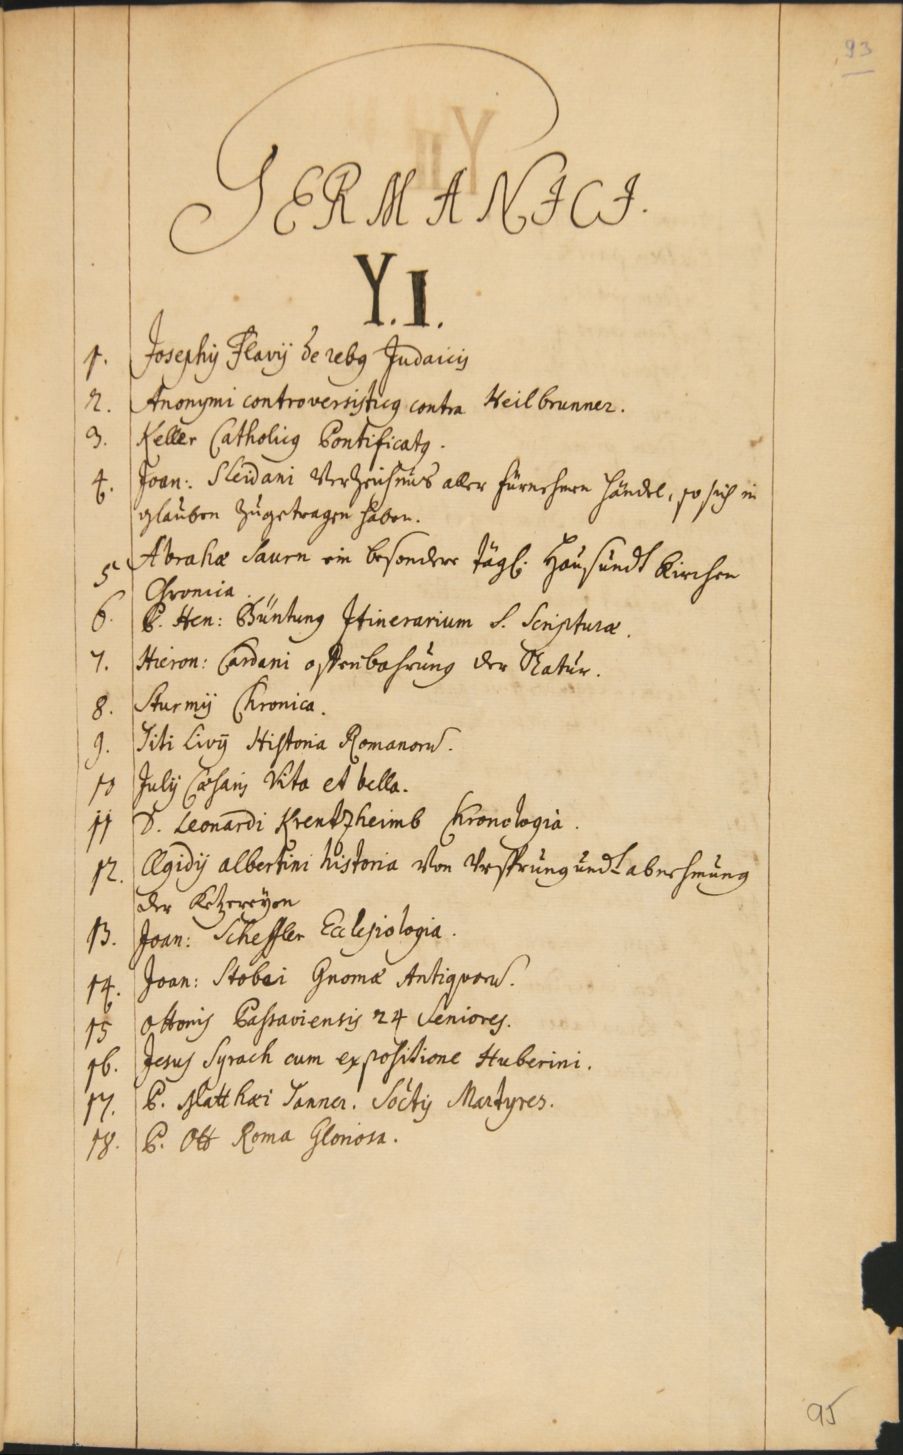 93
GERMANICI.
Y.I.
1. Josephij Flavij de rebq Judaicis
2. Anonymi controversisticq contra Heilbrunner.
3. Keller Catholicq Pontificatq.
4. Joan: Sleidani Verzeichnüs aller fürnehmen händel, so sich in
glauben zugetragen haben.
5 Abrahæ Saurn ein besondere tägl: Haus undt Kirchen
Chronica.
6. P. Hen: Büntung Itinerarium S. Scripturæ.
7. Hieron: Cardani offenbahrung der Natur.
8. Sturmij Chronica.
9. Titi Livij Historia Romanor.
10 Julij Cæsaris Vita et bella.
11 D. Leonardi Krentzheimb Chronologia.
12. Ægidij albertini historia Von Ursprung undt abnehmung
der Ketzereyen
13. Joan: Scheffler Ecclesiologia.
14. Joan: Stobæi Gnomæ Antiquor.
15 Ottonis Passaviensis 24 Seniores.
16. Jesus Syrach cum expositione Huberini.
17. P. Matthæi Tanner. Soctis Martyres.
18. P. Ott Roma Gloriosa.
95